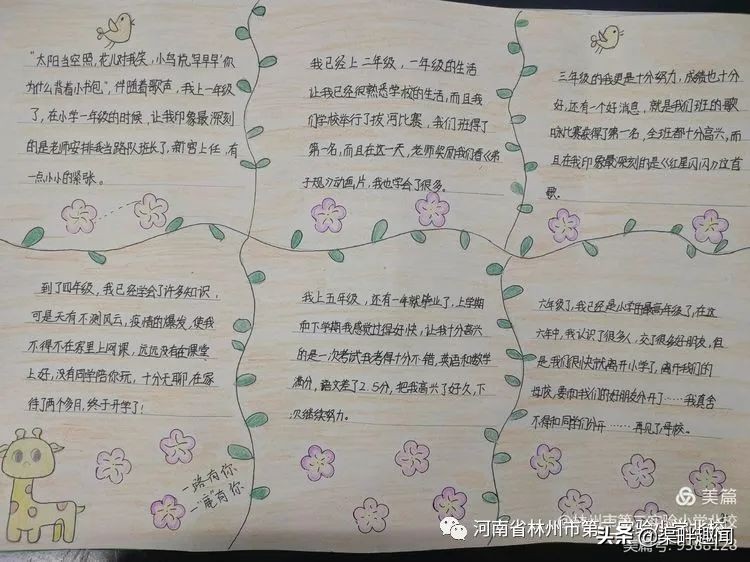 “太阳当空照，花儿对我笑，小鸟说早早早”你
为什么背着小书包”，伴随着歌声，我上一年级
了，在小学一年级的时候，让我印象最深刻
的是老师安排我当路队班长了，新官上任，有
一点小小的紧张。
我已经上二年级，一年级的生活
让我已经很熟悉学校的生活，而且我
们学校举行了拔河比赛，我们班得了
第一名，而且在这一天，老师奖励我们看《弟
子规》动画片，我也学会了很多。
三年级的我更是十分努力，成绩也十分
好，还有一个好消息，就是我们班的歌
咏比赛获得了第一名，全班都十分高兴，而
且在我印象最深刻的是《红星闪闪》这首
歌。
到了四年级，我已经学会了许多知识，
可是天有不测风云，疫情的爆发，使我
不得不在家里上网课，远远没有在课堂
上好，没有同学陪你玩，十分无聊，在家
待了两个多月，终于开学了！
我上五年级，还有一年就毕业了，上学期
和下学期我感觉过得好快，让我十分高兴
的是一次考试我考得十分不错，英语和数学
满分，语文差了2.5分，把我高兴了好久，下
次继续努力。
六年级了，我已经是小学的最高年级了，在这
六年中，我认识了很多人，交了很多好朋友，但
是我们很快就离开小学了，离开我们的
母校，要和我们的好朋友分开了……我真舍
不得和同学们分开……再见了母校。
一路有你
一“鹿”有你
美篇
@林州市第二实验小学北校
河南省林州市第二实验小学北校
头条 @渠畔趣闻
美篇号：9588128